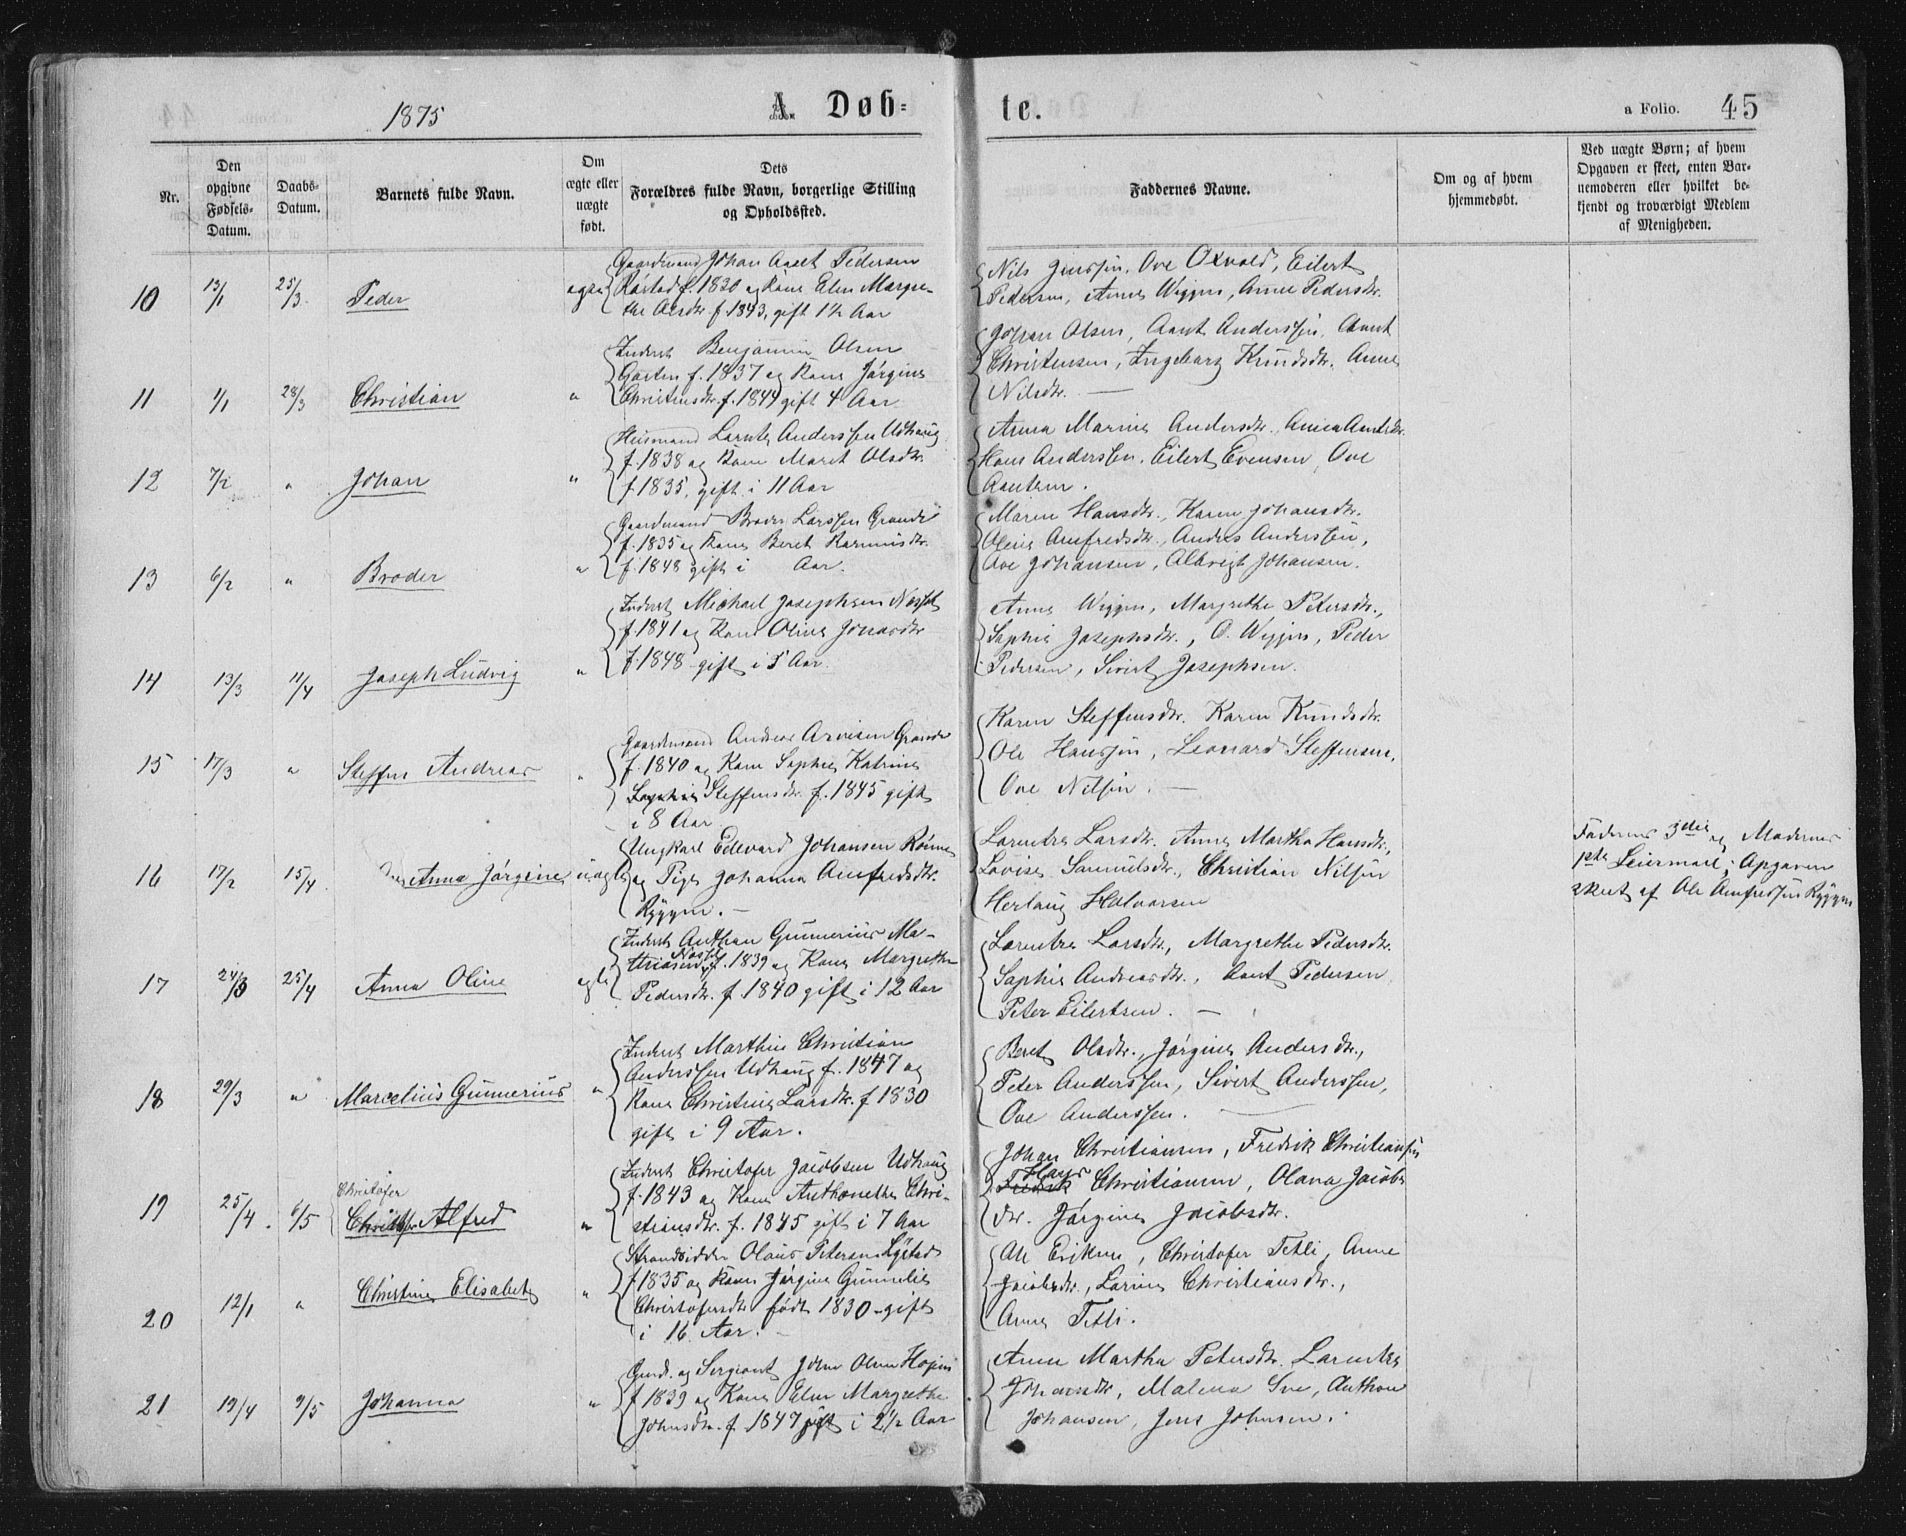 1875
A. Døb=
te.
a Folio. 45
Nr.
Den opgivne Fødsels-Datum.
Daabs-Datum.
Barnets fulde Navn.
Om ægte eller uægte født.
Dets Forældres fulde Navn, borgerlige Stilling og Opholdssted.
Faddernes Navne.
Om og af hvem hjemmedøbt.
Ved uægte Børn; af hvem Opgaven er skeet, enten Barnemoderen eller hvilket bekjendt og troværdigt Medlem af Menigheden.
10 13/1 25/3 Peder
Gaardmand Johan Aaset Pedersen
f. 1820 og Kone Elen Margre-
the Olsdtr f 1843, gift 1½ Aar
Nils Jenssen, Ove Oxvold, Eilert
Pedersen, Anne Wiggen, Anne Pedersdtr.
11 1/1 28/3 Christian "
Inderst Benjamin Olsen
Garten f. 1837 og Kone Jørgine
Christensdtr. f. 1844 gift 4 Aar
Johan Olsen, Aant Anderssen, Aant
Christensen, Ingeborg Knudsdtr. Anne
Nilsdtr. —
12 7/2 " Johan "
Husmand Larnts Anderssen Udhaug
f. 1838 og Kone Maret Olsdtr.
f. 1835, gift i 11 Aar
Anna Marine Andersdtr.
Hans Anderssen. Eilert Evensen, Ove
Aantsen.
13 6/2 " Broder "
Gaardmand Broder Larssen Grande
f. 1835 og Kone Beret Rasmusdtr.
f. 1848 gift i Aar.
Maren Hansdtr., Karen Johansdtr.
Oline Arnfredsdtr., Anders Anderssen,
Ove Johansen, Albrigt Johansen.
14 13/3 11/4 Joseph Ludvig "
Inderst Michael Josephsen
f. 1841 og Kone Oline Jonasdtr
f. 1848 gift i 5 Aar.
Anne Wiggen, Margrethe Petersdtr.,
Sophie Josephsdtr., O. Wiggen, Peder
Pedersen, Sivert Josephsen.
15 17/3 " Steffen Andreas "
Gaardmand Andreas Arvesen Grande
f. 1840 og Kone Sophie Katrine
Steffensdtr. f. 1845 gift
i 8 Aar
Karen Steffensdtr. Karen Knudsdtr.
Ole Hanssen, Leonard Steffensen,
Ove Nilssen. —
16 17/2 15/4 Anna Jørgine uægte
Ungkarl Edevard Johansen Rønne
og Pige Johanna Arnfredsdtr.
Ryggen. —
Larentse Larsdtr. Anne Martha Hansdtr.,
Lovise Samuelsdtr., Christian Nilssen
Herlaug Halvorsen
Faderens 3die og Moderens
1ste Leiermaal; Opgaven
skeet af Ole Arnfredssen Ryggen
17 24/3 25/4 Anna Oline ægte
Inderst Anthon Gunnerius Ma-
thiasen f. 1839 og Kone Margrethe
Pedersdtr. f 1840 gift i 12 Aar
Larentse Larsdtr., Margrethe Pedersdtr.
Sophie Andreasdtr., Aant Pedersen
Peter Eilertsen. —
18 29/3 " Marcelius Gunnerius "
Inderst Marthin Christian
Anderssen Udhaug f. 1847 og
Kone Christine Larsdtr. f 1830
gift i 9 Aar.
Beret Olsdtr., Jørgine Andersdtr.,
Peter Anderssen, Sivert Anderssen,
Ove Anderssen. —
19 25/4. 6/5 Christofer
Christofer Alfred "
Inderst Christofer Jacobsen Udhaug
f. 1843 og Kone Anthonette Chri-
stiansdtr. f. 1845 gift i 7 Aar
Johan Christiansen, Fredrik Christiansen
Hans
Fredrik Christiansen, Olava Jacobs
dtr. Jørgine Jacobsdtr.
20 12/1 " Christine Elisabet "
Strandsidder Olaus Petersen
f. 1835 og Kone Jørgine Gunnelie
Christofersdtr født 1830 gift
i 16 Aar. —
Ole Eriksen, Christofer Tetli, Anne
Jacobsdtr., Larine Christiansdtr.,
Anne Tetli.
21 19/4 9/5 Johanna "
Gmd. og Sergeant Johan Olsen
f 1839 og Kone Elen Margrethe
Johnsdtr. f. 1847 gift i 2½ Aar
Anne Martha Petersdtr. Larentse
Johansdtr, Malena Sve, Anthon
Johansen, Jens Johnsen.